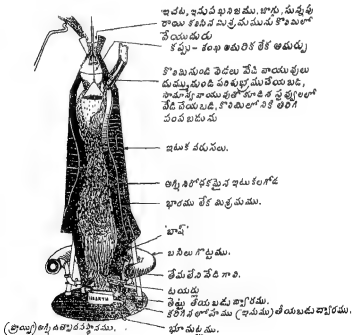 ఇచట, ఇనుప ఖనిజము, బొగ్గు, సున్నపు
రాయి కలిసిన మిశ్రమమును కొలిమిలో
వేయుదురు
కప్పు - శంఖ ఆకారిక లేక అమర్పు
కొలిమినుండి వెడలు వేడి వాయువులు
దుమ్మునుండి పరిశుభ్రము చేయబడి,
సామాన్య వాయువుతో కూడిన స్టవులలలో
వేడి చేయబడి, కొలిమిలోనికి తిరిగి
పంపబడును
ఇటుక వరుసలు.
అగ్ని నిరోధకమైన ఇటుకలగోడ
భారము లేక మిశ్రమము.
'బాష్'
బసిలు గొట్టము.
తేమలేని వేడి గాలి.
టయర్లు
తెట్టు తీయబడు ద్వారము.
కరిగిన లోహము (ఇనుము) తీయబడు ద్వారము.
భూమట్టము.
(ప్రొయ్యి) అగ్ని ఉత్పాదనస్థానము.
HEARTH